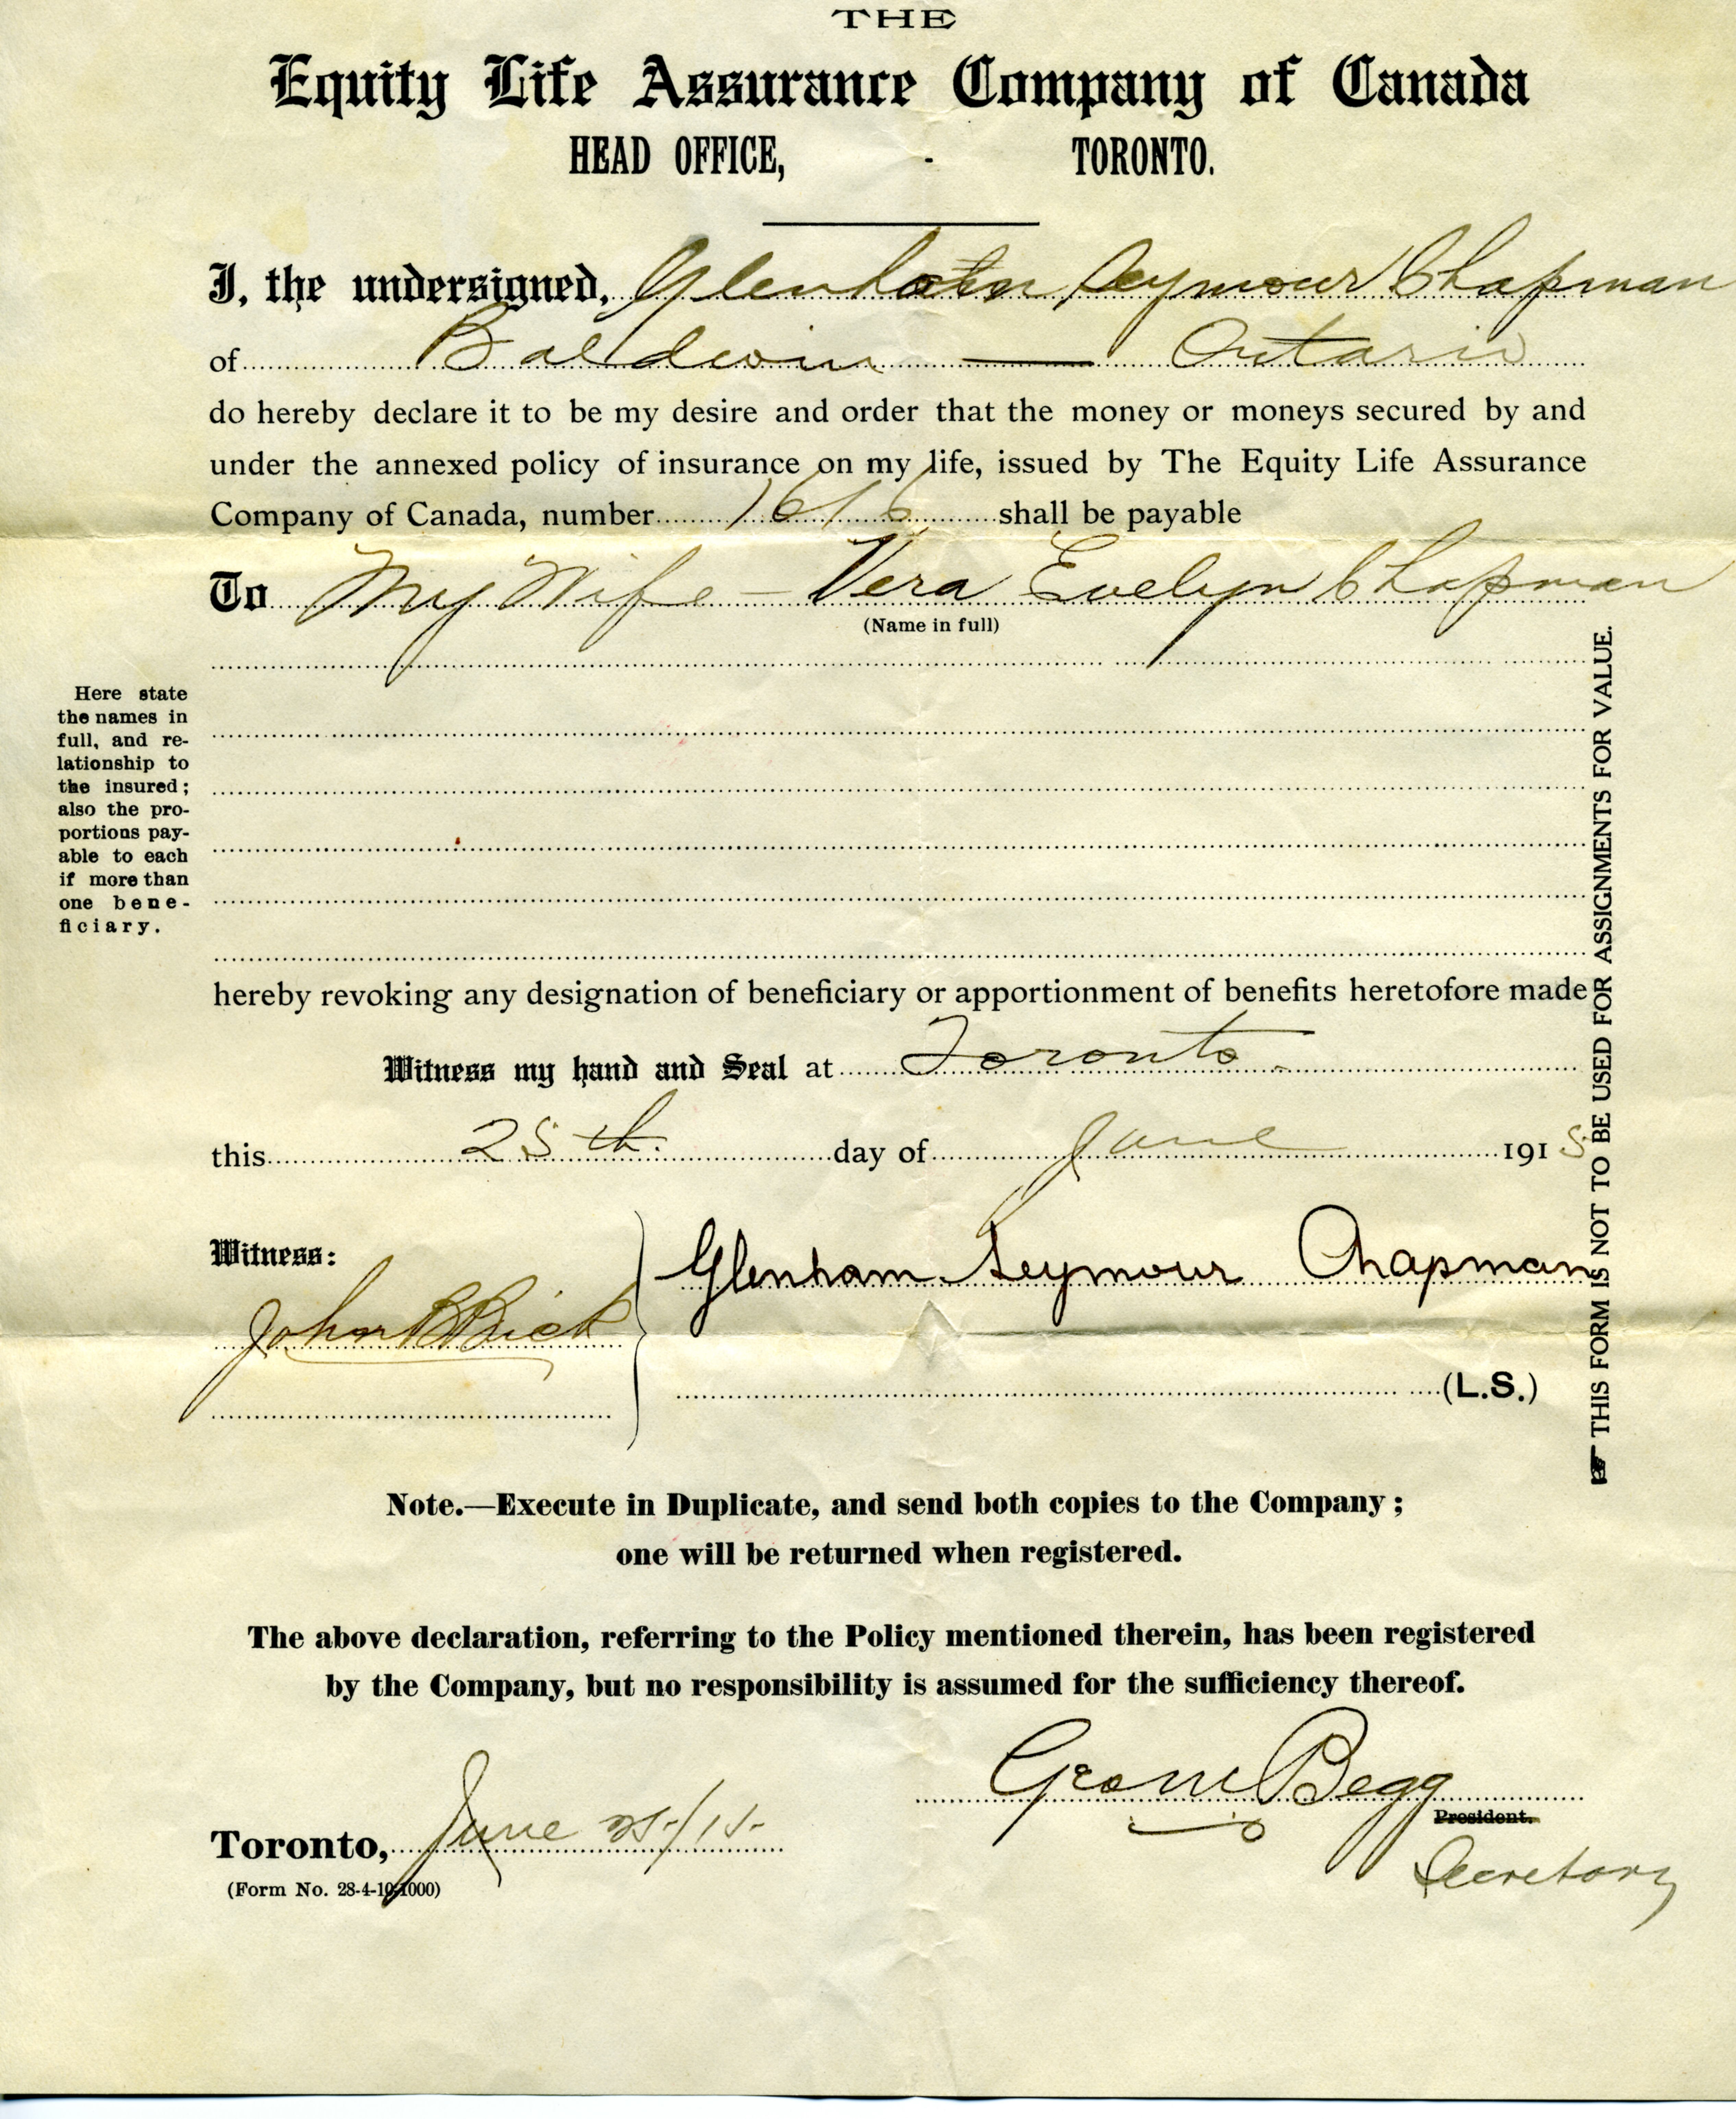 THE
Equity Life Assurance Company of Canada
HEAD OFFICE, - TORONTO.
I, the undersigned, Glenham Seymour Chapman
of Baldwin — Ontario
do hereby declare it to be my desire and order that the money or moneys secured by and
under the annexed policy of insurance on my life, issued by The Equity Life Assurance
Company of Canada, number 1616 shall be payable
To My Wife – Vera Evelyn Chapman
(Name in full)
Here state
the names in
full, and re-
lationship to
the insured;
also the pro-
portions pay-
able to each
if more than
one bene-
ficiary.
hereby revoking any designation of beneficiary or apportionment of benefits heretofore made
Witness my hand and Seal at Toronto
this 25th. day of June 1915
☛ THIS FORM IS NOT TO BE USED FOR ASSIGNMENTS FOR VALUE.
Witness:
Glenham Seymour Chapman
John B
(L.S.)
Note.—Execute in Duplicate, and send both copies to the Company;
one will be returned when registered.
The above declaration, referring to the Policy mentioned therein, has been registered
by the Company, but no responsibility is assumed for the sufficiency thereof.
Begg
President.
Secretary
Toronto, June 25/15
(Form No. 28-4-10-1000)